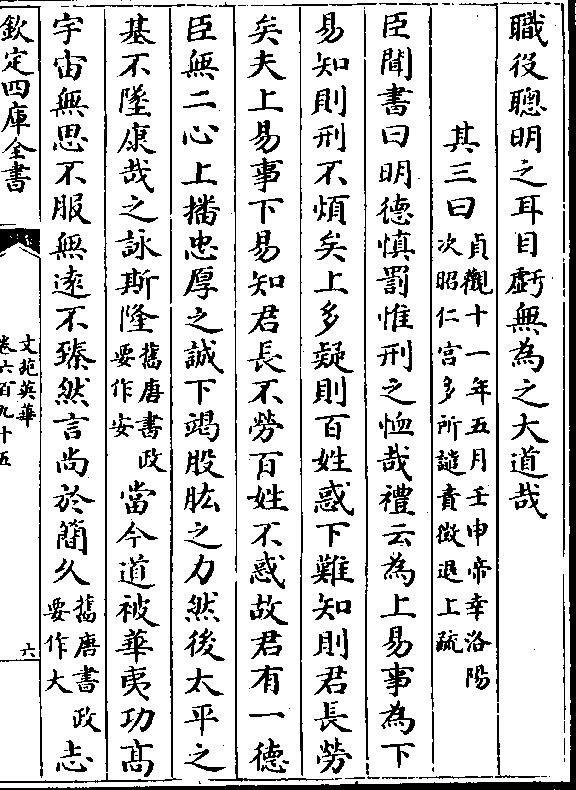 職役聰明之耳目虧無為之大道哉
其三曰貞觀十一年五月壬申帝幸洛陽
次昭仁宮多所譴責徵退上疏
臣聞書曰明德慎罰惟刑之恤哉禮云為上易事為下
易知則刑不煩矣上多疑則百姓惑下難知則君長勞
矣夫上易事下易知君長不勞百姓不惑故君有一德
臣無二心上播忠厚之誠下竭股肱之力然後太平之
基不墜康哉之詠斯隆舊唐書政
要作安當今道被華夷功高
宇宙無思不服無遠不臻然言尚於簡久舊唐書政
要作大志
欽定四庫全書
文苑英華
卷六百九十五
六